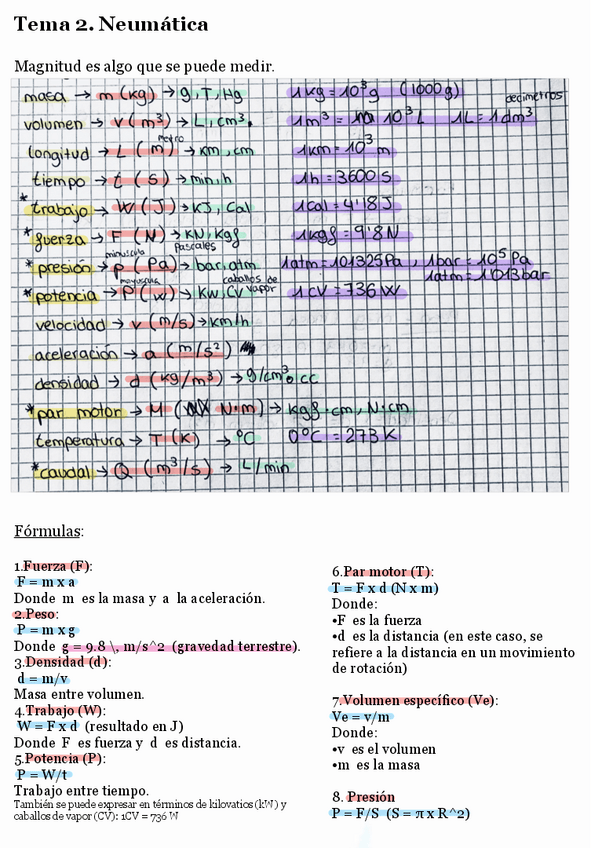 Tema 2. Neumática
Magnitud es algo que se puede medir.
masa → m (kg) → g, T, Hg 1 kg = 10³ g (1000g)
decímetros
volumen → V (m³) → L, cm³, 1 m³ = 10³ L 1L = 1 dm³
metro
longitud → L (m) → km, cm 1km = 10³ m
tiempo → t (s) → min, h 1h = 3600 s
* trabajo → W (J) → KJ, Cal 1 cal = 4'18 J
* fuerza → F (N) → KN, Kgf 1 kgf = 9'8 N
minuscula Pascales
* presión → p (Pa) → bar, atm 1atm = 101325 Pa, 1bar = 10⁵ Pa
1atm = 1'013 bar
mayuscula caballos de vapor
* potencia → P (W) → KW, CV 1 CV = 736 W
velocidad → v (m/s) → km/h
aceleración → a (m/s²)
densidad → d (kg/m³) → g/cm³ o cc
* par motor → M (N·m) → kgf·cm, N·cm
temperatura → T (K) → °C 0°C = 273 K
* caudal → Q (m³/s) → L/min
Fórmulas:
1.Fuerza (F):
F = m x a
Donde m es la masa y a la aceleración.
2.Peso:
P = m x g
Donde g = 9.8 \, m/s^2 (gravedad terrestre).
3.Densidad (d):
d = m/v
Masa entre volumen.
4.Trabajo (W):
W = F x d (resultado en J)
Donde F es fuerza y d es distancia.
5.Potencia (P):
P = W/t
Trabajo entre tiempo.
También se puede expresar en términos de kilovatios (kW) y
caballos de vapor (CV): 1CV = 736 W
6.Par motor (T):
T = F x d (N x m)
Donde:
•F es la fuerza
•d es la distancia (en este caso, se
refiere a la distancia en un movimiento
de rotación)
7.Volumen específico (Ve):
Ve = v/m
Donde:
•v es el volumen
•m es la masa
8. Presión
P = F/S (S = π x R^2)